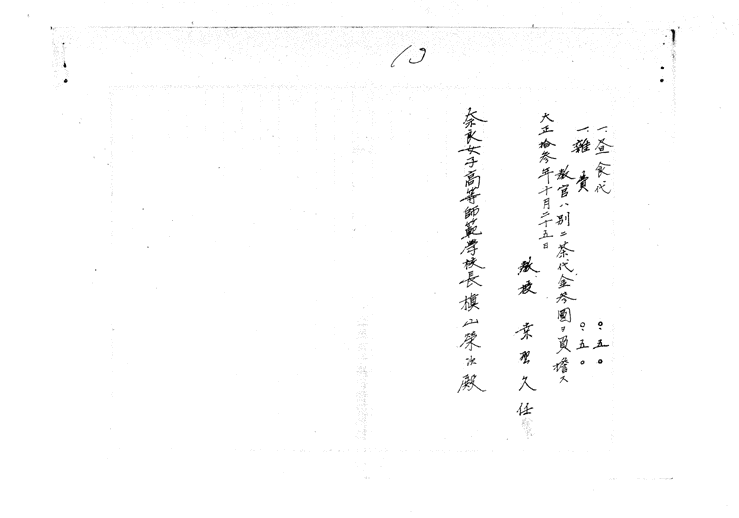 10
一、昼食代 〇.五〇
一、雑費 〇.五〇
教官ハ別ニ茶代金参圓ヲ負擔ス
大正拾参年十月二十五日
教授 久任
奈良女子高等師範学校長槇山榮次殿